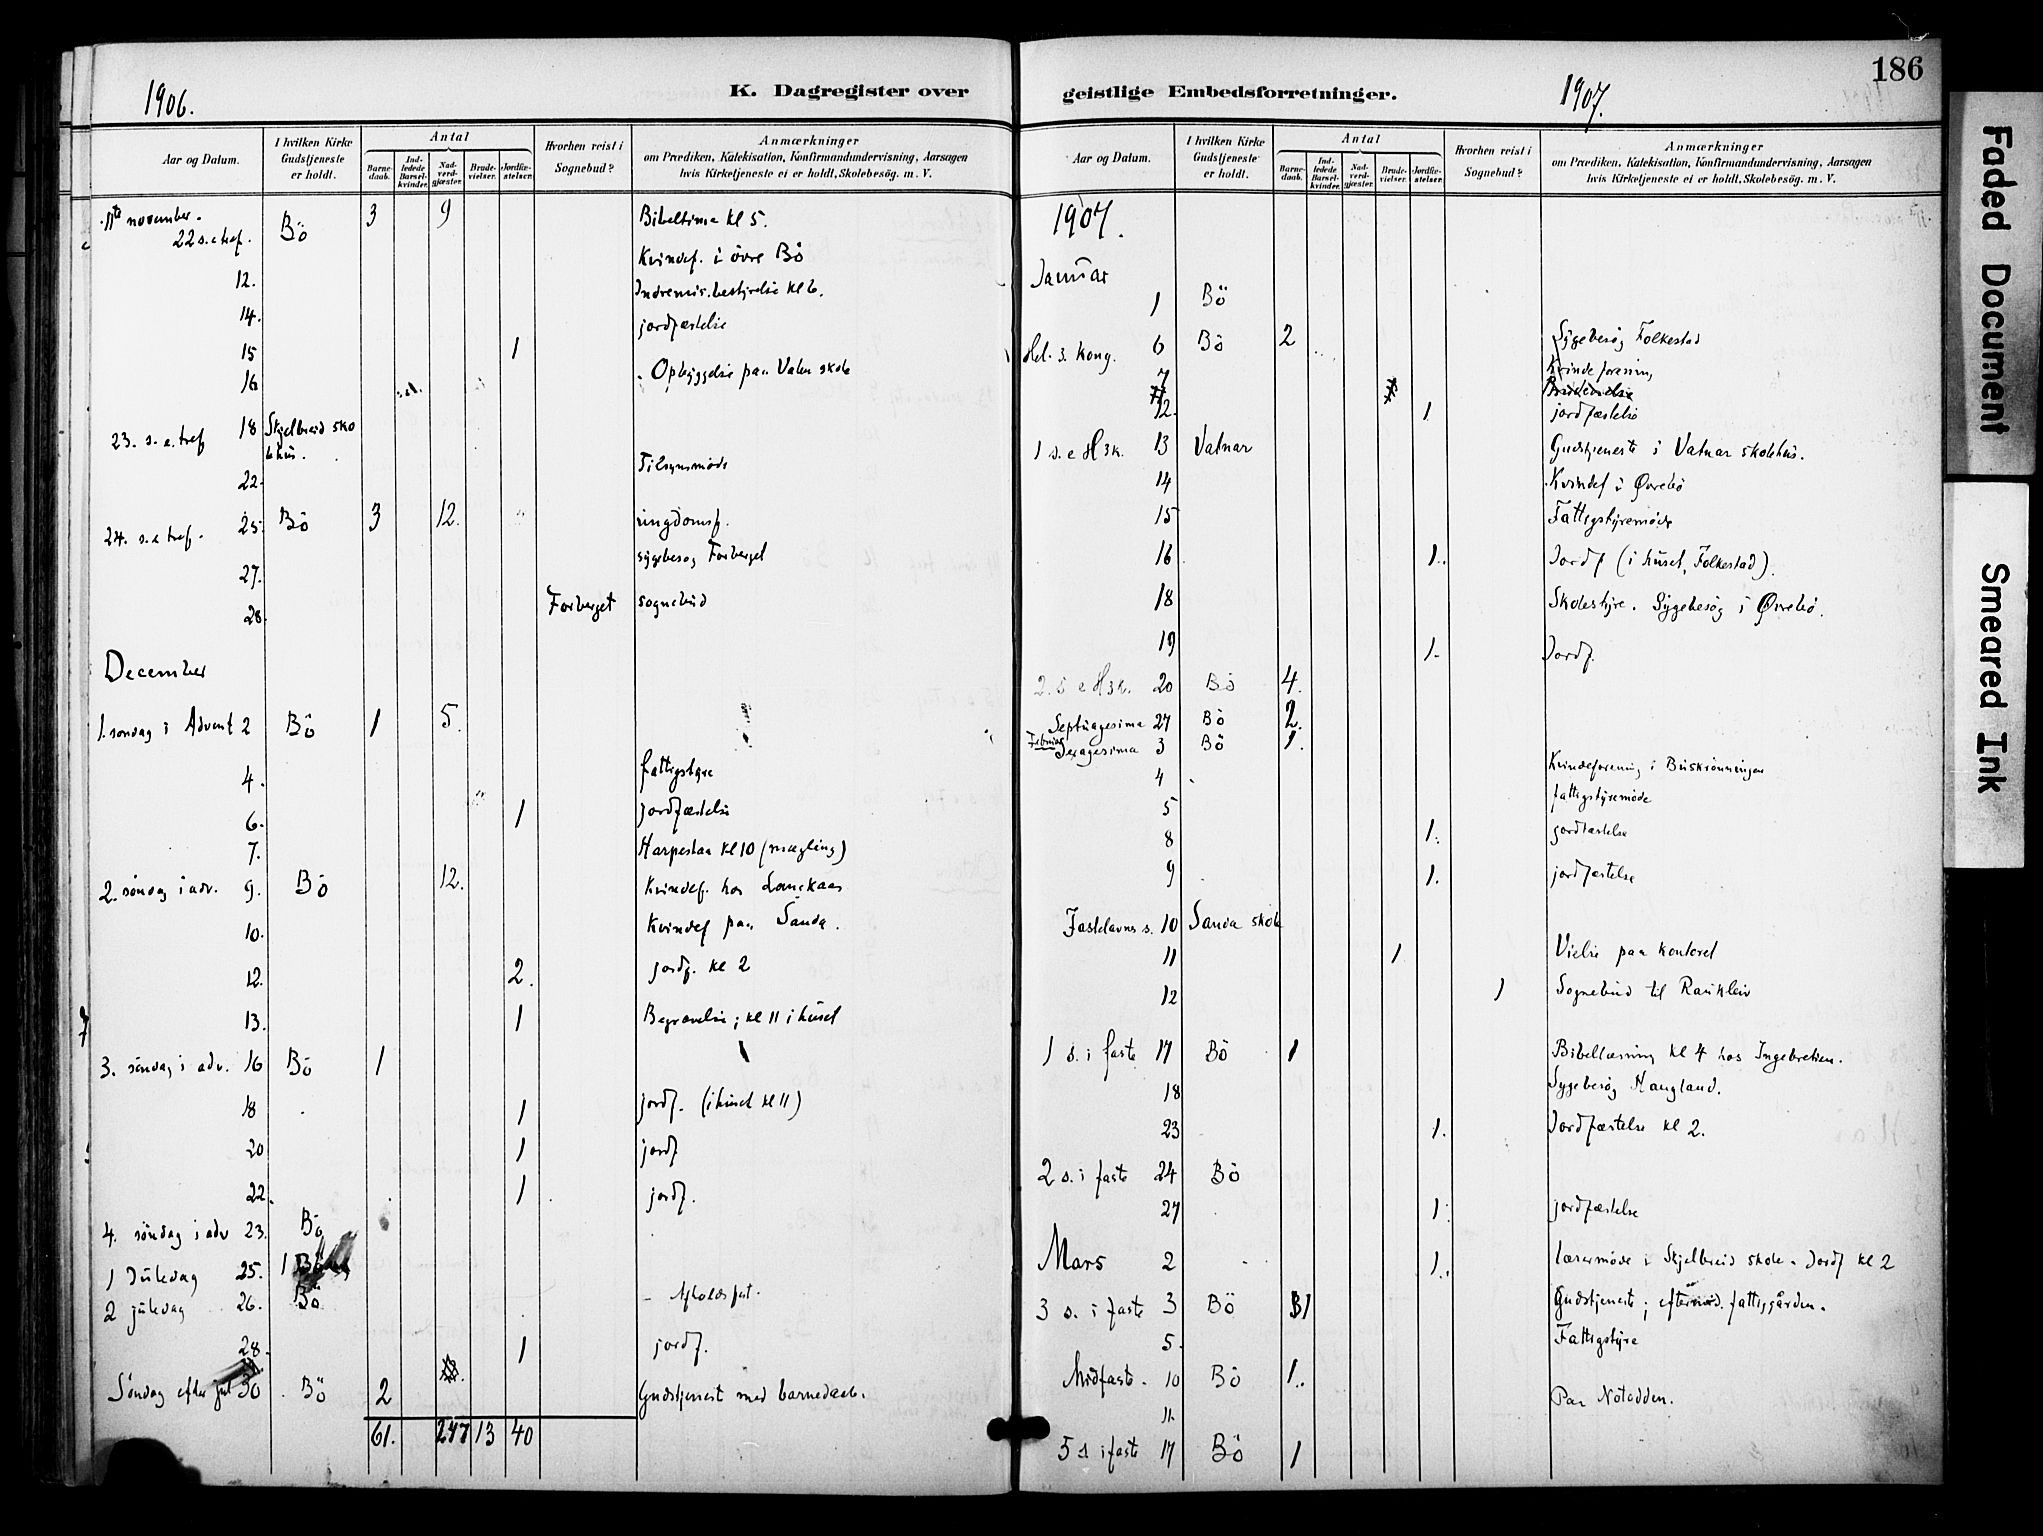 1906.
K. Dagregister over
Aar og Datum.
I hvilken Kirke Gudstjeneste er holdt.
Antal
Barnedaab.
Indledede Barselkvinder.
Nadverdgjæster.
Brudevielser.
Jordfæstelser.
Hvorhen reist i Sognebud?
Anmærkninger
om Prædiken, Katekisation, Konfirmandundervisning, Aarsagen
hvis Kirketjeneste ei er holdt, Skolebesög. m. V.
11te november.
22 s. e. tref. Bö 3 9 Bibeltime kl 5.
Kvindef. i övre Bö
12. Indremis. bestyrelse kl 6.
14. jordfæstelse
15 1
16 Opbyggelse paa Valen skole
23. s. e. tref 18 Skjelbreid sko
lehus.
22. Tilsynsmöde
24. s. e tref. 25. Bö 3 12. ungdomsf.
27. sygebesög Forberget
28. Forberget sognebud
December
1. söndag i Advent 2 Bö 1 5.
4. fattigstyre
6. 1 jordfæstelse
7. Harpestaa kl 10 (mægling)
2. söndag i adv. 9. Bö 12. Kvindef. hos
10. Kvindef paa Sanda.
12. 2. jordf. kl 2
13. 1 Begravelse; kl 11 i huset
3. söndag i adv. 16 Bö 1
18 1 jordf. (i huset kl 11)
20 1 jordf
22. 1 jordf.
4. söndag i adv 23. Bö
1 Juledag 25. Bö
2 juledag 26. Bö Afholdsfest.
28. 1 jordf.
Söndag efter jul 30 Bö 2 Gudstjenest med barnedaab.
61. 247 13 40
geistlige Embedsforretninger.
1907.
186
Aar og Datum.
I hvilken Kirke Gudstjeneste er holdt.
Antal
Barnedaab.
Indledede Barselkvinder.
Nadverdgjæster.
Brudevielser.
Jordfæstelser.
Hvorhen reist i Sognebud?
Anmærkninger
om Prædiken, Katekisation, Konfirmandundervisning, Aarsagen
hvis Kirketjeneste ei er holdt, Skolebesög. m. V.
1907.
Januar
1 Bö
Hel. 3. Kong. 6 Bö 2 Sygebesög Folkestad
7 Kvindeforening
Brudevielse
12. 1 jordfæstelse
1 s. e H3k. 13 Vatnar Gudstjeneste i Vatnar skolehus.
14 Kvindef i Øvrebö
15 Fattigstyremöde
16 1. Jordf (i huset, Folkestad).
18 Skolestyre. Sygebesög i Øvrebö.
19 1. Jordf.
2. s e H3k. 20 Bö 4.
Septuagesima 27 Bö 2.
Februar
Sexagesima 3 Bö 1.
4 Kvindeforening i Buskrönningen
5 fattigstyremöde
8 1. jordfæstelse
9 1. jordfæstelse
Fastelavns s. 10 Sanda skole
11 1 Vielse paa kontoret
12 1 Sognebud til Raukleiv
1 s. i faste 17 Bö 1 Bibellæsning kl 4 hos Ingebretsen.
18 Sygebesög Haugland.
23 1. Jordfæstelse kl 2.
2 s. i faste 24 Bö
27 1. jordfæstelse
Mars 2 1. Lærermöde i Skjelbreid skole. Jordf kl 2
3 s. i faste 3 Bö 1 Gudstjeneste; eftermid. fattiggården.
5. Fattigstyre
Midfaste. 10 Bö 1.
11. Paa Notodden.
5 s i faste 17 Bö 1
Faded Document
Smeared Ink